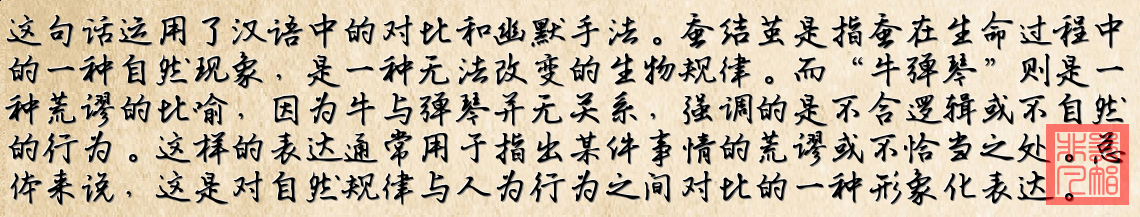 这句话运用了汉语中的对比和幽默手法。蚕结茧是指蚕在生命过程中
的一种自然现象，是一种无法改变的生物规律。而“牛弹琴”则是一
种荒谬的比喻，因为牛与弹琴并无关系，强调的是不合逻辑或不自然
的行为。这样的表达通常用于指出某件事情的荒谬或不恰当之处。总
体来说，这是对自然规律与人为行为之间对比的一种形象化表达。